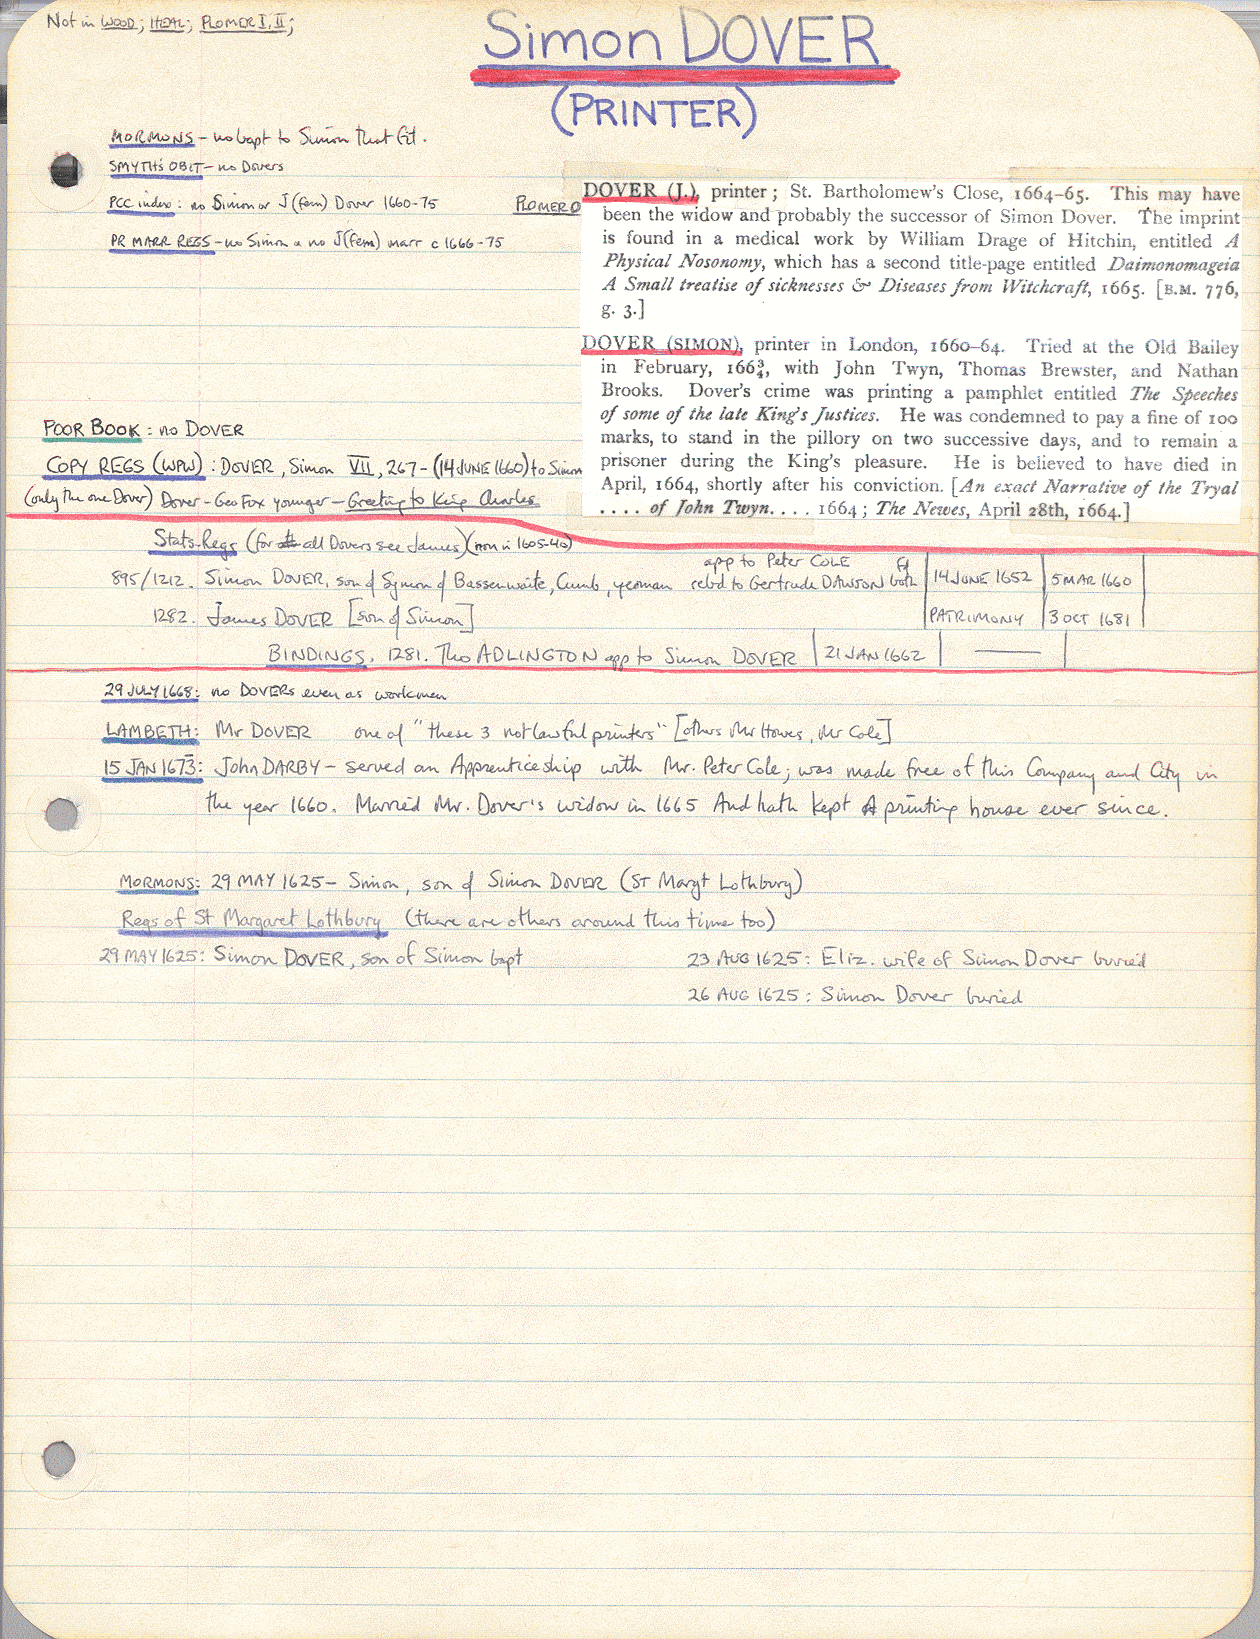 Not in WOOD; HEAL; PLOMER I, II;
Simon DOVER
(PRINTER)
MORMONS – no bapt to Simon that fit.
SMYTH'S OBIT – no Dovers
PCC index: no Simon or J (fem) Dover 1660-75
PR MARR REGS – no Simon & no J (fem) marr c 1666-75
PLOMER O
DOVER (J.), printer; St. Bartholomew's Close, 1664–65. This may have
been the widow and probably the successor of Simon Dover. The imprint
is found in a medical work by William Drage of Hitchin, entitled A
Physical Nosonomy, which has a second title-page entitled Daimonomageia
A Small treatise of sicknesses & Diseases from Witchcraft, 1665. [B.M. 776,
g. 3.]
DOVER (SIMON), printer in London, 1660–64. Tried at the Old Bailey
in February, 166¾, with John Twyn, Thomas Brewster, and Nathan
Brooks. Dover's crime was printing a pamphlet entitled The Speeches
of some of the late King's Justices. He was condemned to pay a fine of 100
marks, to stand in the pillory on two successive days, and to remain a
prisoner during the King's pleasure. He is believed to have died in
April, 1664, shortly after his conviction. [An exact Narrative of the Tryal
.... of John Twyn.... 1664; The Newes, April 28th, 1664.]
POOR BOOK: no DOVER
COPY REGS (WPW): DOVER, Simon VII, 267 – (14 JUNE 1660) to Simon
(only the one Dover) Dover – Geo Fox younger – Greeting to King Charles
Stats. Regs (for all Dovers see James) (non in 1605-40)
895/1212. Simon DOVER, son of Symon of Bassenwaite, Cumb, yeoman app to Peter COLE rebd to Gertrude DAWSON Fd both 14 JUNE 1652 5 MAR 1660
1282. James DOVER [son of Simon] PATRIMONY 3 OCT 1681
BINDINGS. 1281. Tho ADLINGTON app to Simon DOVER 21 JAN 1662 ——
29 JULY 1668: no DOVERs even as workmen
LAMBETH: Mr DOVER one of "these 3 not lawful printers" [others Mr Howes, Mr Cole]
15 JAN 1673: John DARBY – served an Apprenticeship with Mr. Peter Cole; was made free of this Company and City in
the year 1660. Married Mr. Dover's widow in 1665 And hath kept A printing house ever since.
MORMONS: 29 MAY 1625 – Simon, son of Simon DOVER (ST Margt Lothbury)
Regs of St Margaret Lothbury (there are others around this time too)
29 MAY 1625: Simon DOVER, son of Simon bapt
23 AUG 1625: Eliz. wife of Simon Dover buried
26 AUG 1625: Simon Dover buried